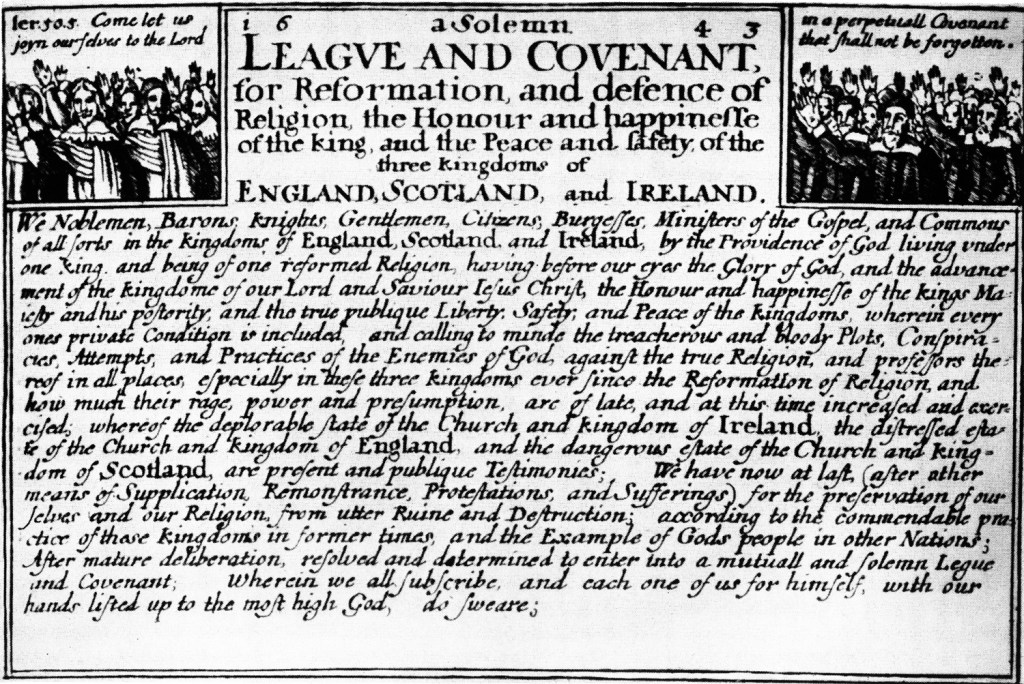 Ier. 50. 5. Come let us
joyn ourselves to the Lord
1 6 a Solemn 4 3
LEAGVE AND COVENANT,
for Reformation, and defence of
Religion, the Honour and happinesse
of the king, and the Peace and safety of the
three kingdoms of
ENGLAND, SCOTLAND, and IRELAND.
in a perpetuall Covenant
that shall not be forgotten.
We Noblemen, Barons, knights, Gentlemen, Citizens, Burgesses, Ministers of the Gospel, and Commons
of all sorts in the kingdoms of England, Scotland, and Ireland, by the Providence of God living vnder
one King, and being of one reformed Religion, having before our eyes the Glory of God, and the advance-
ment of the kingdome of our Lord and Saviour Iesus Christ, the Honour and happinesse of the kings Ma-
iesty and his posterity, and the true publique Liberty, Safety, and Peace of the kingdoms, wherein every
ones private Condition is included, and calling to minde the treacherous and bloody Plots, Conspira-
cies, Attempts, and Practices of the Enemies of God, against the true Religion, and professors the-
reof in all places, especially in these three kingdoms ever since the Reformation of Religion, and
how much their rage, power and presumption, are of late, and at this time increased and exer-
cised; whereof the deplorable state of the Church and kingdom of Ireland, the distressed esta-
te of the Church and kingdom of England, and the dangerous estate of the Church and king-
dom of Scotland, are present and publique Testimonies; We have now at last, (after other
means of Supplication, Remonstrance, Protestations, and Sufferings) for the preservation of our
selves and our Religion, from utter Ruine and Destruction; according to the commendable pra-
ctice of these kingdoms in former times, and the Example of Gods people in other Nations;
After mature deliberation, resolved and determined to enter into a mutuall and solemn Legue
and Covenant; Wherein we all subscribe, and each one of us for himself, with our
hands lifted up to the most high God, do sweare;